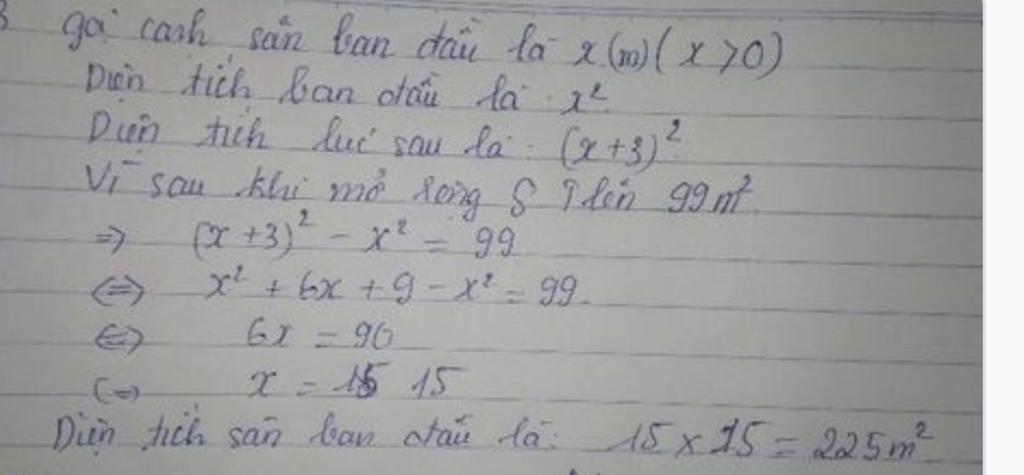 gọi cạnh sân ban đầu là x (m) ( x > 0 )
Diện tích ban đầu là x²
Diện tích lúc sau là : (x+3)²
Vì sau khi mở rộng S ↑ lên 99m²
=> (x+3)² - x² = 99
<=> x² + 6x + 9 - x² = 99
<=> 6x = 90
<=> x = 15
Diện tích sân ban đầu là: 15 x 15 = 225m²